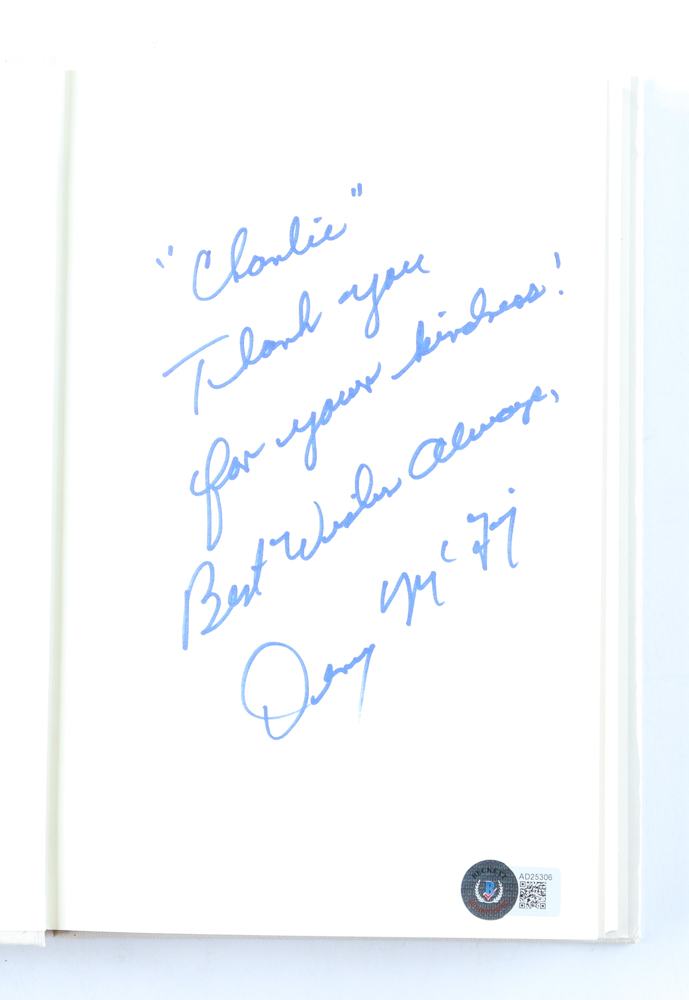 "Charlie"
Thank you
for your kindness!
Best Wishes Always,
Denny McLain
BECKETT
AD25306